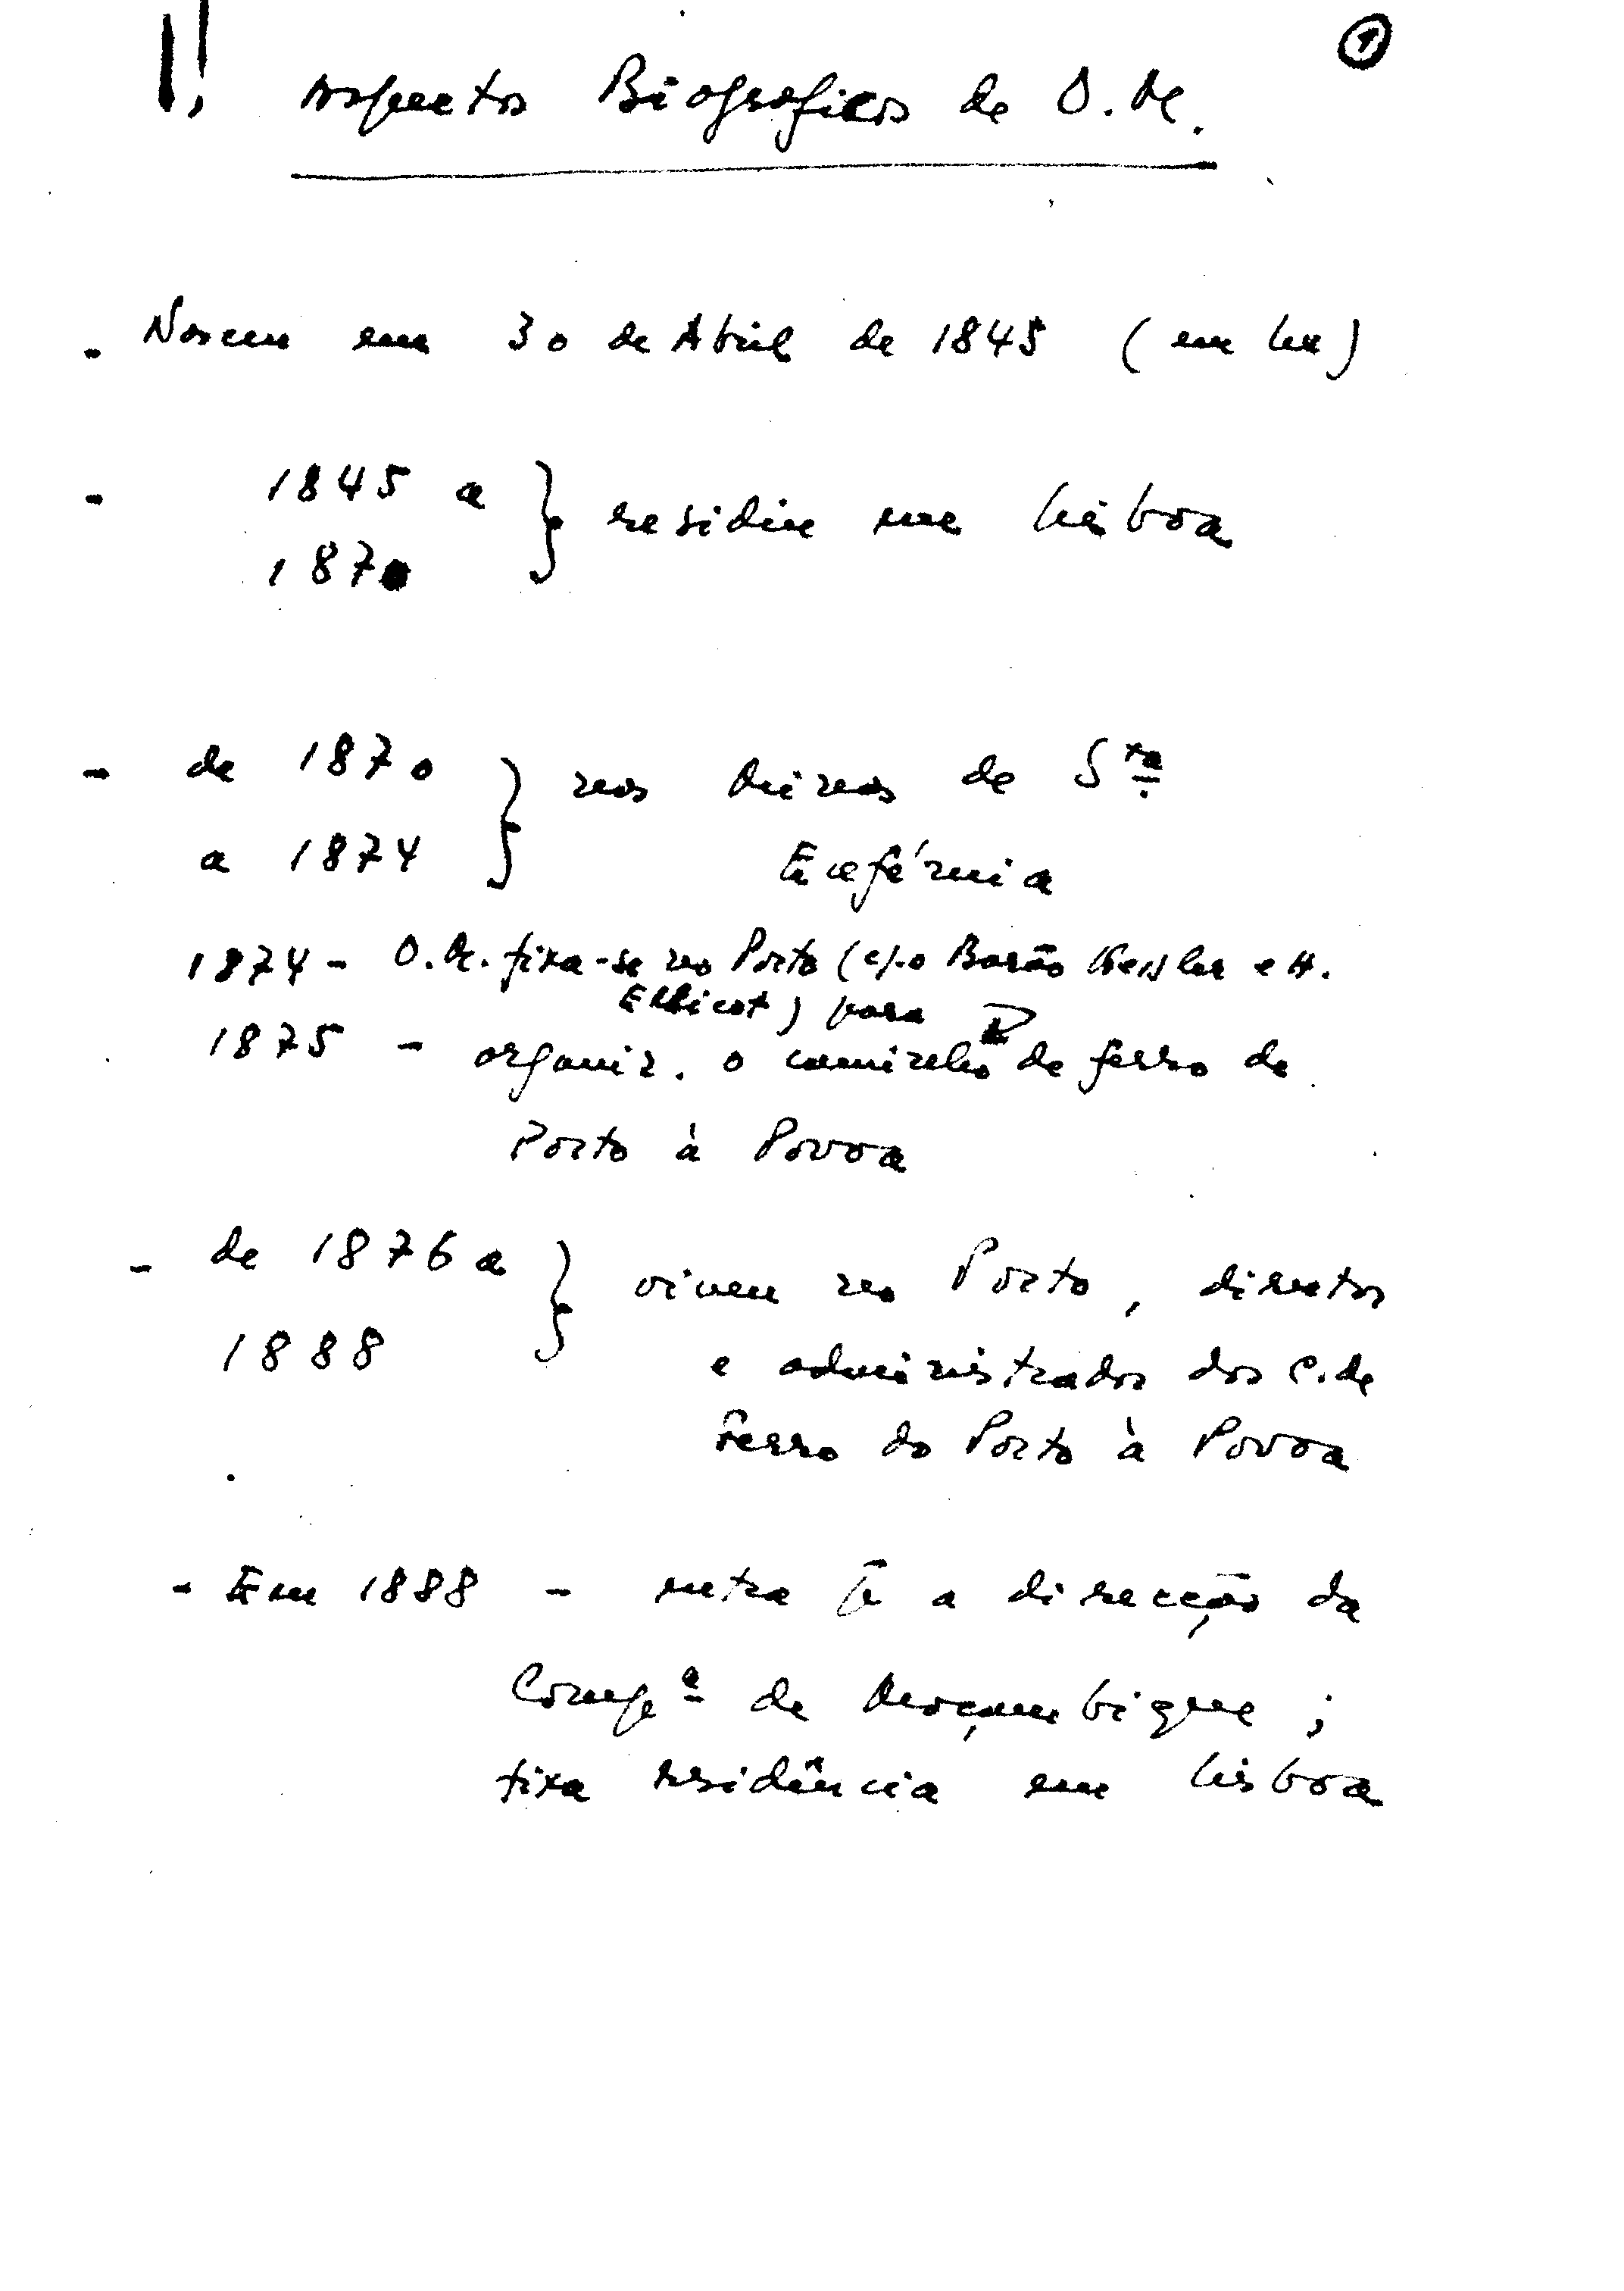 !! Aspectos Biográficos de O. M.
①
. Nasceu em 30 de Abril de 1845 (em Lx)
- 1845 a
1870 } residiu em Lisboa
- de 1870
a 1874 } nas Minas de Sta.
Eufémia
1874 - O. M. fixa-se no Porto (c/ o Barão Kessler e H.
Ellicot) para
1875 - organiz. o caminho de ferro de
Porto à Povoa
- de 1876 a
1888 } viveu no Porto, director
e administrador dos C. de
Ferro do Porto à Povoa
- Em 1888 - entra p a direcção da
Compª de Moçambique ;
fixa residência em Lisboa